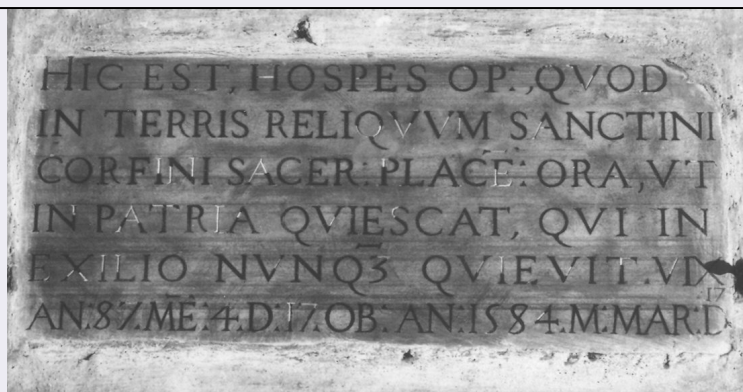 HIC EST, HOSPES OP:, QVOD
IN TERRIS RELIQVVM SANCTINI
CORFINI SACER: PLACĒ: ORA, VT
IN PATRIA QVIESCAT, QVI IN
EXILIO NVNQ3 QVIEVIT. VIX
AN: 87. MĒ: 4. D: 17. OB: AN: 1584. M: MAR: D
17